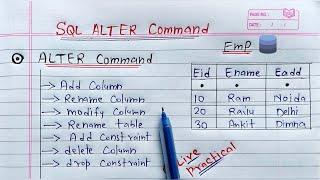 SQL ALTER Command
PAGE NO.:
DATE: / /
EmP
ALTER Command
→ Add Column
→ Rename Column
→ modify Column
→ Rename table
→ Add Constraint
→ delete Column
→ drop Constraint
Eid Ename Eadd
10 Ram Noida
20 Railu Delhi
30 Ankit Dimna
Live
Practical